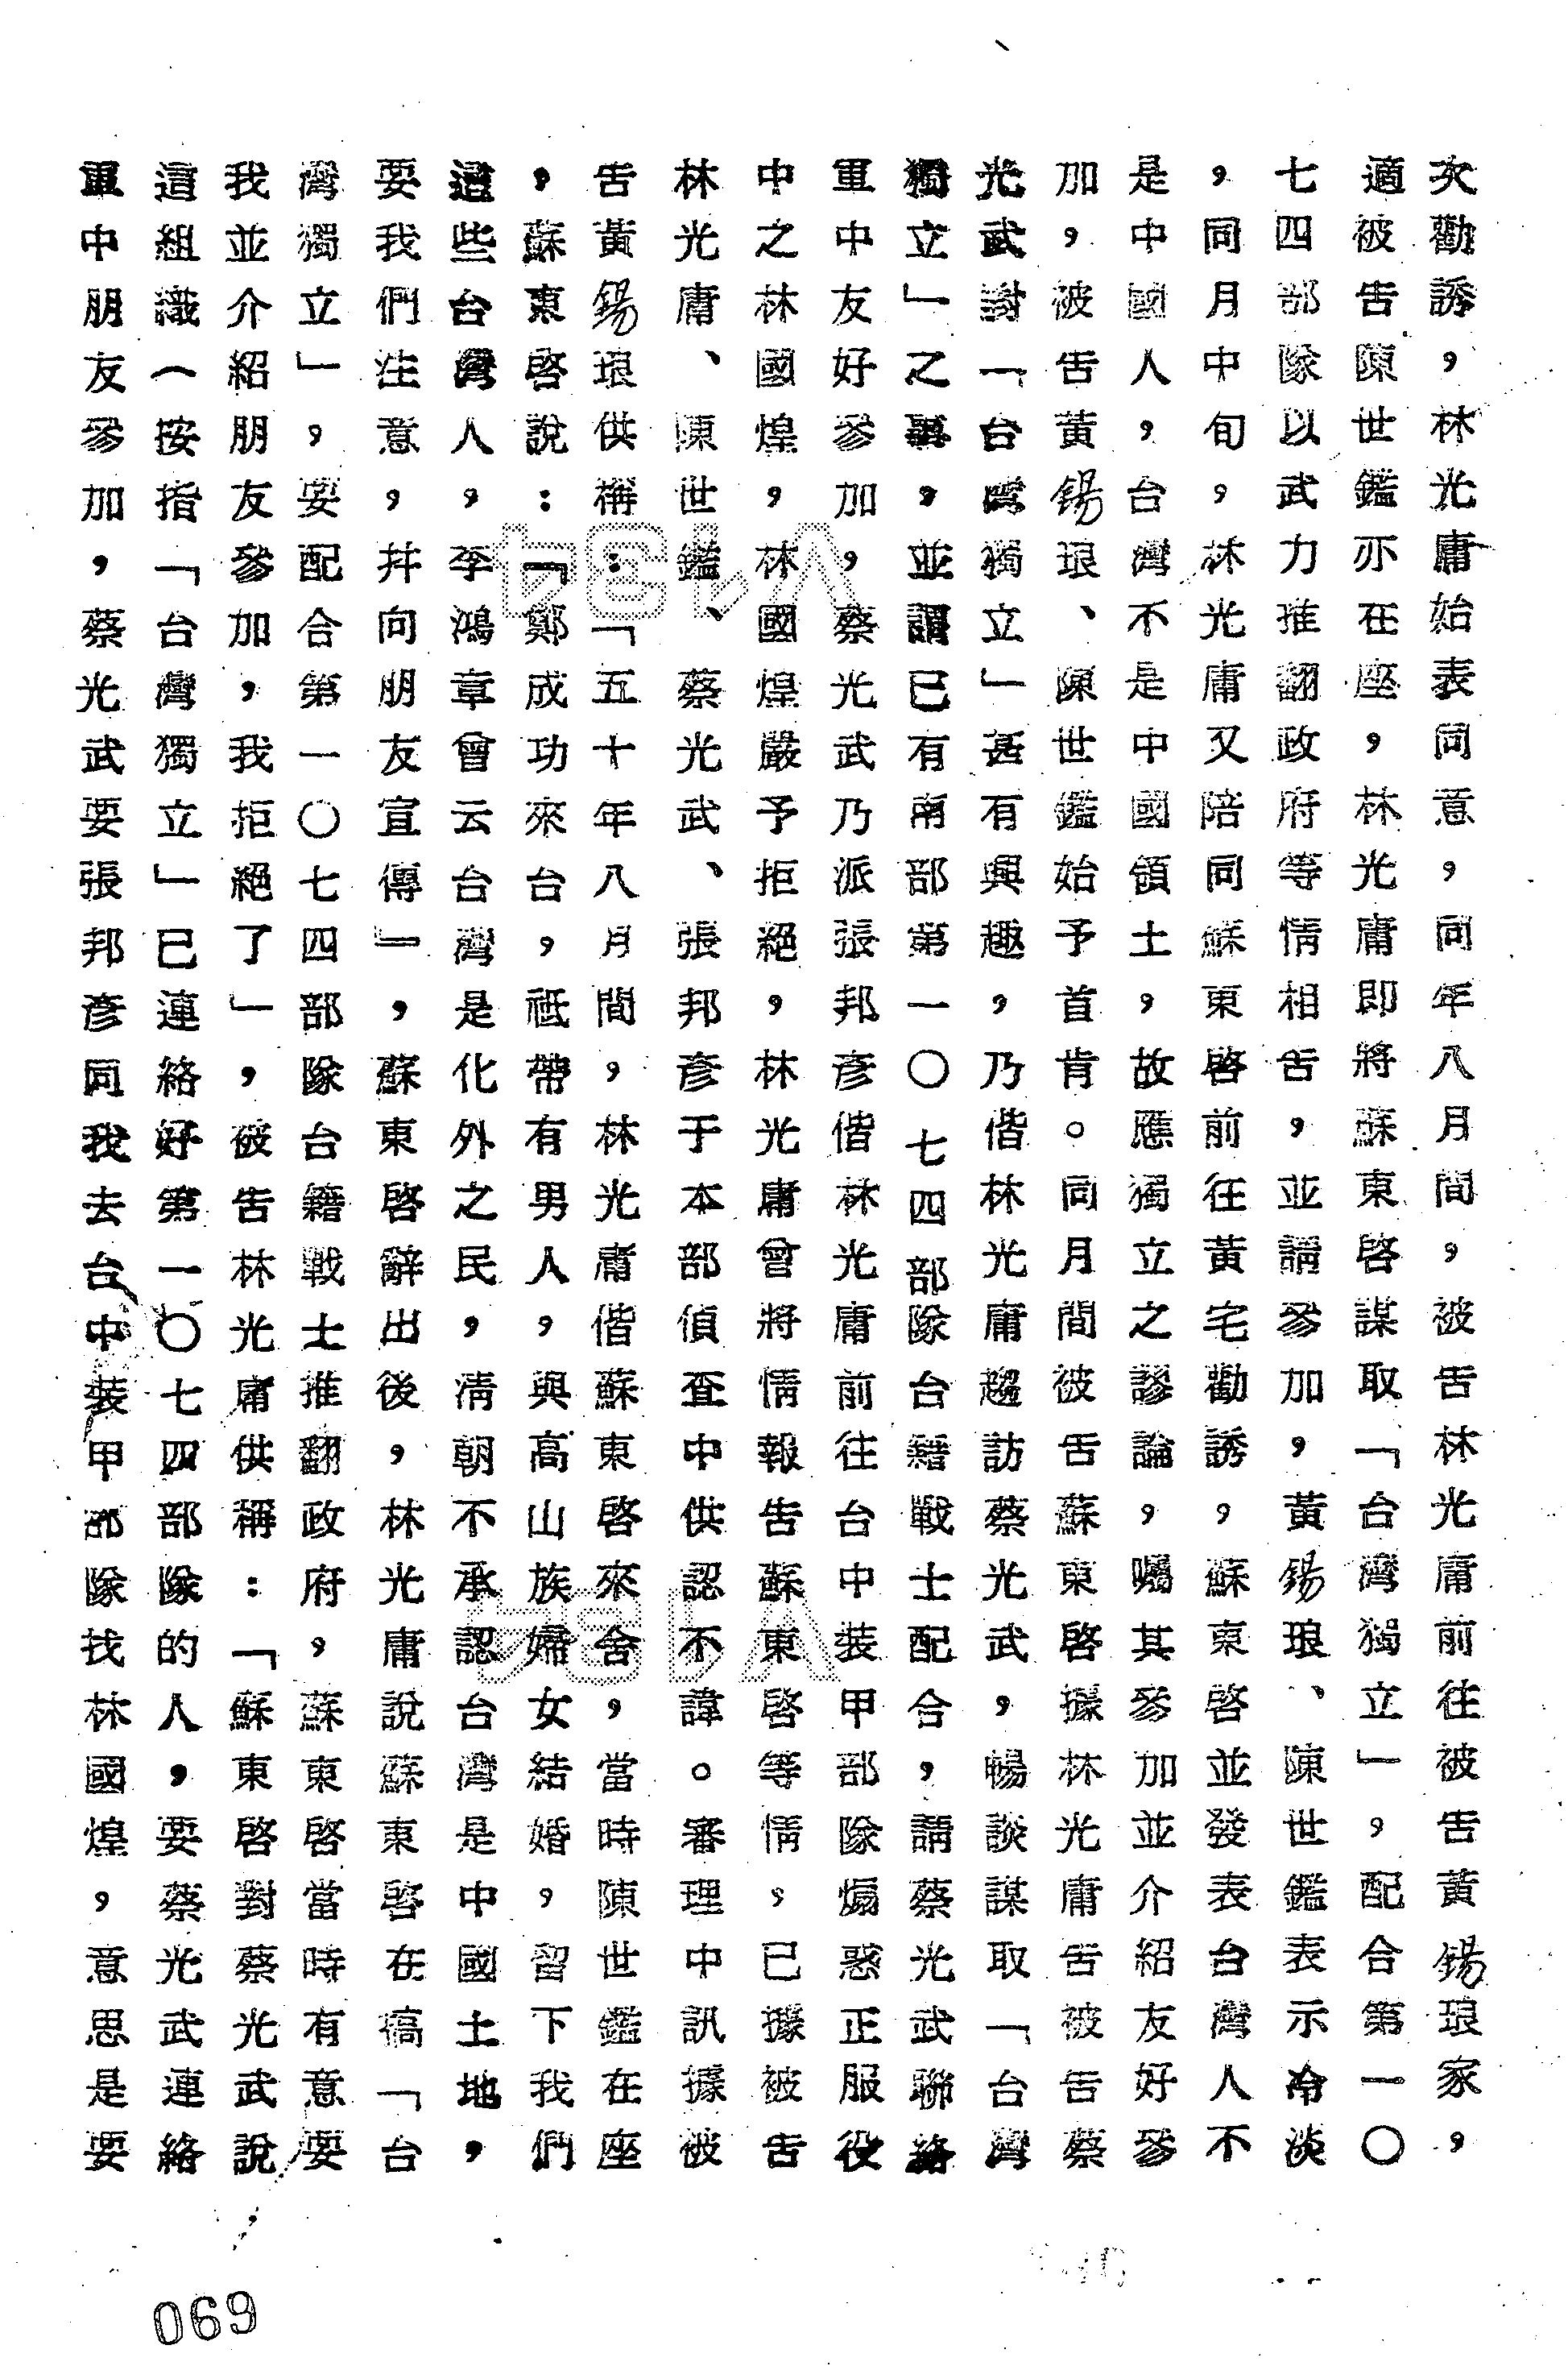 次勸誘，林光庸始表同意，同年八月間，被告林光庸前往被告黃錫琅家，
適被告陳世鑑亦在座，林光庸即將蘇東啓謀取「台灣獨立」，配合第一〇
七四部隊以武力推翻政府等情相告，並請參加，黃錫琅、陳世鑑表示冷淡
，同月中旬，林光庸又陪同蘇東啓前往黃宅勸誘，蘇東啓並發表台灣人不
是中國人，台灣不是中國領土，故應獨立之謬論，囑其參加並介紹友好參
加，被告黃錫琅、陳世鑑始予首肯。同月間被告蘇東啓據林光庸告被告蔡
光武對「台灣獨立」甚有興趣，乃偕林光庸趨訪蔡光武，暢談謀取「台灣
獨立」之事，並謂已有南部第一〇七四部隊台籍戰士配合，請蔡光武聯絡
軍中友好參加，蔡光武乃派張邦彥偕林光庸前往台中裝甲部隊煽惑正服役
中之林國煌，林國煌嚴予拒絕，林光庸曾將情報告蘇東啓等情，已據被告
林光庸、陳世鑑、蔡光武、張邦彥于本部偵查中供認不諱。審理中訊據被
告黃錫琅供稱：「五十年八月間，林光庸偕蘇東啓來舍，當時陳世鑑在座
，蘇東啓說：『鄭成功來台，祇帶有男人，與高山族婦女結婚，留下我們
這些台灣人，李鴻章曾云台灣是化外之民，清朝不承認台灣是中國土地，
要我們注意，并向朋友宣傳』，蘇東啓辭出後，林光庸說蘇東啓在搞「台
灣獨立」，要配合第一〇七四部隊台籍戰士推翻政府，蘇東啓當時有意要
我並介紹朋友參加，我拒絕了」，被告林光庸供稱：「蘇東啓對蔡光武說
這組織（按指「台灣獨立」已連絡好第一〇七四部隊的人，要蔡光武連絡
軍中朋友參加，蔡光武要張邦彥同我去台中裝甲部隊找林國煌，意思是要
069